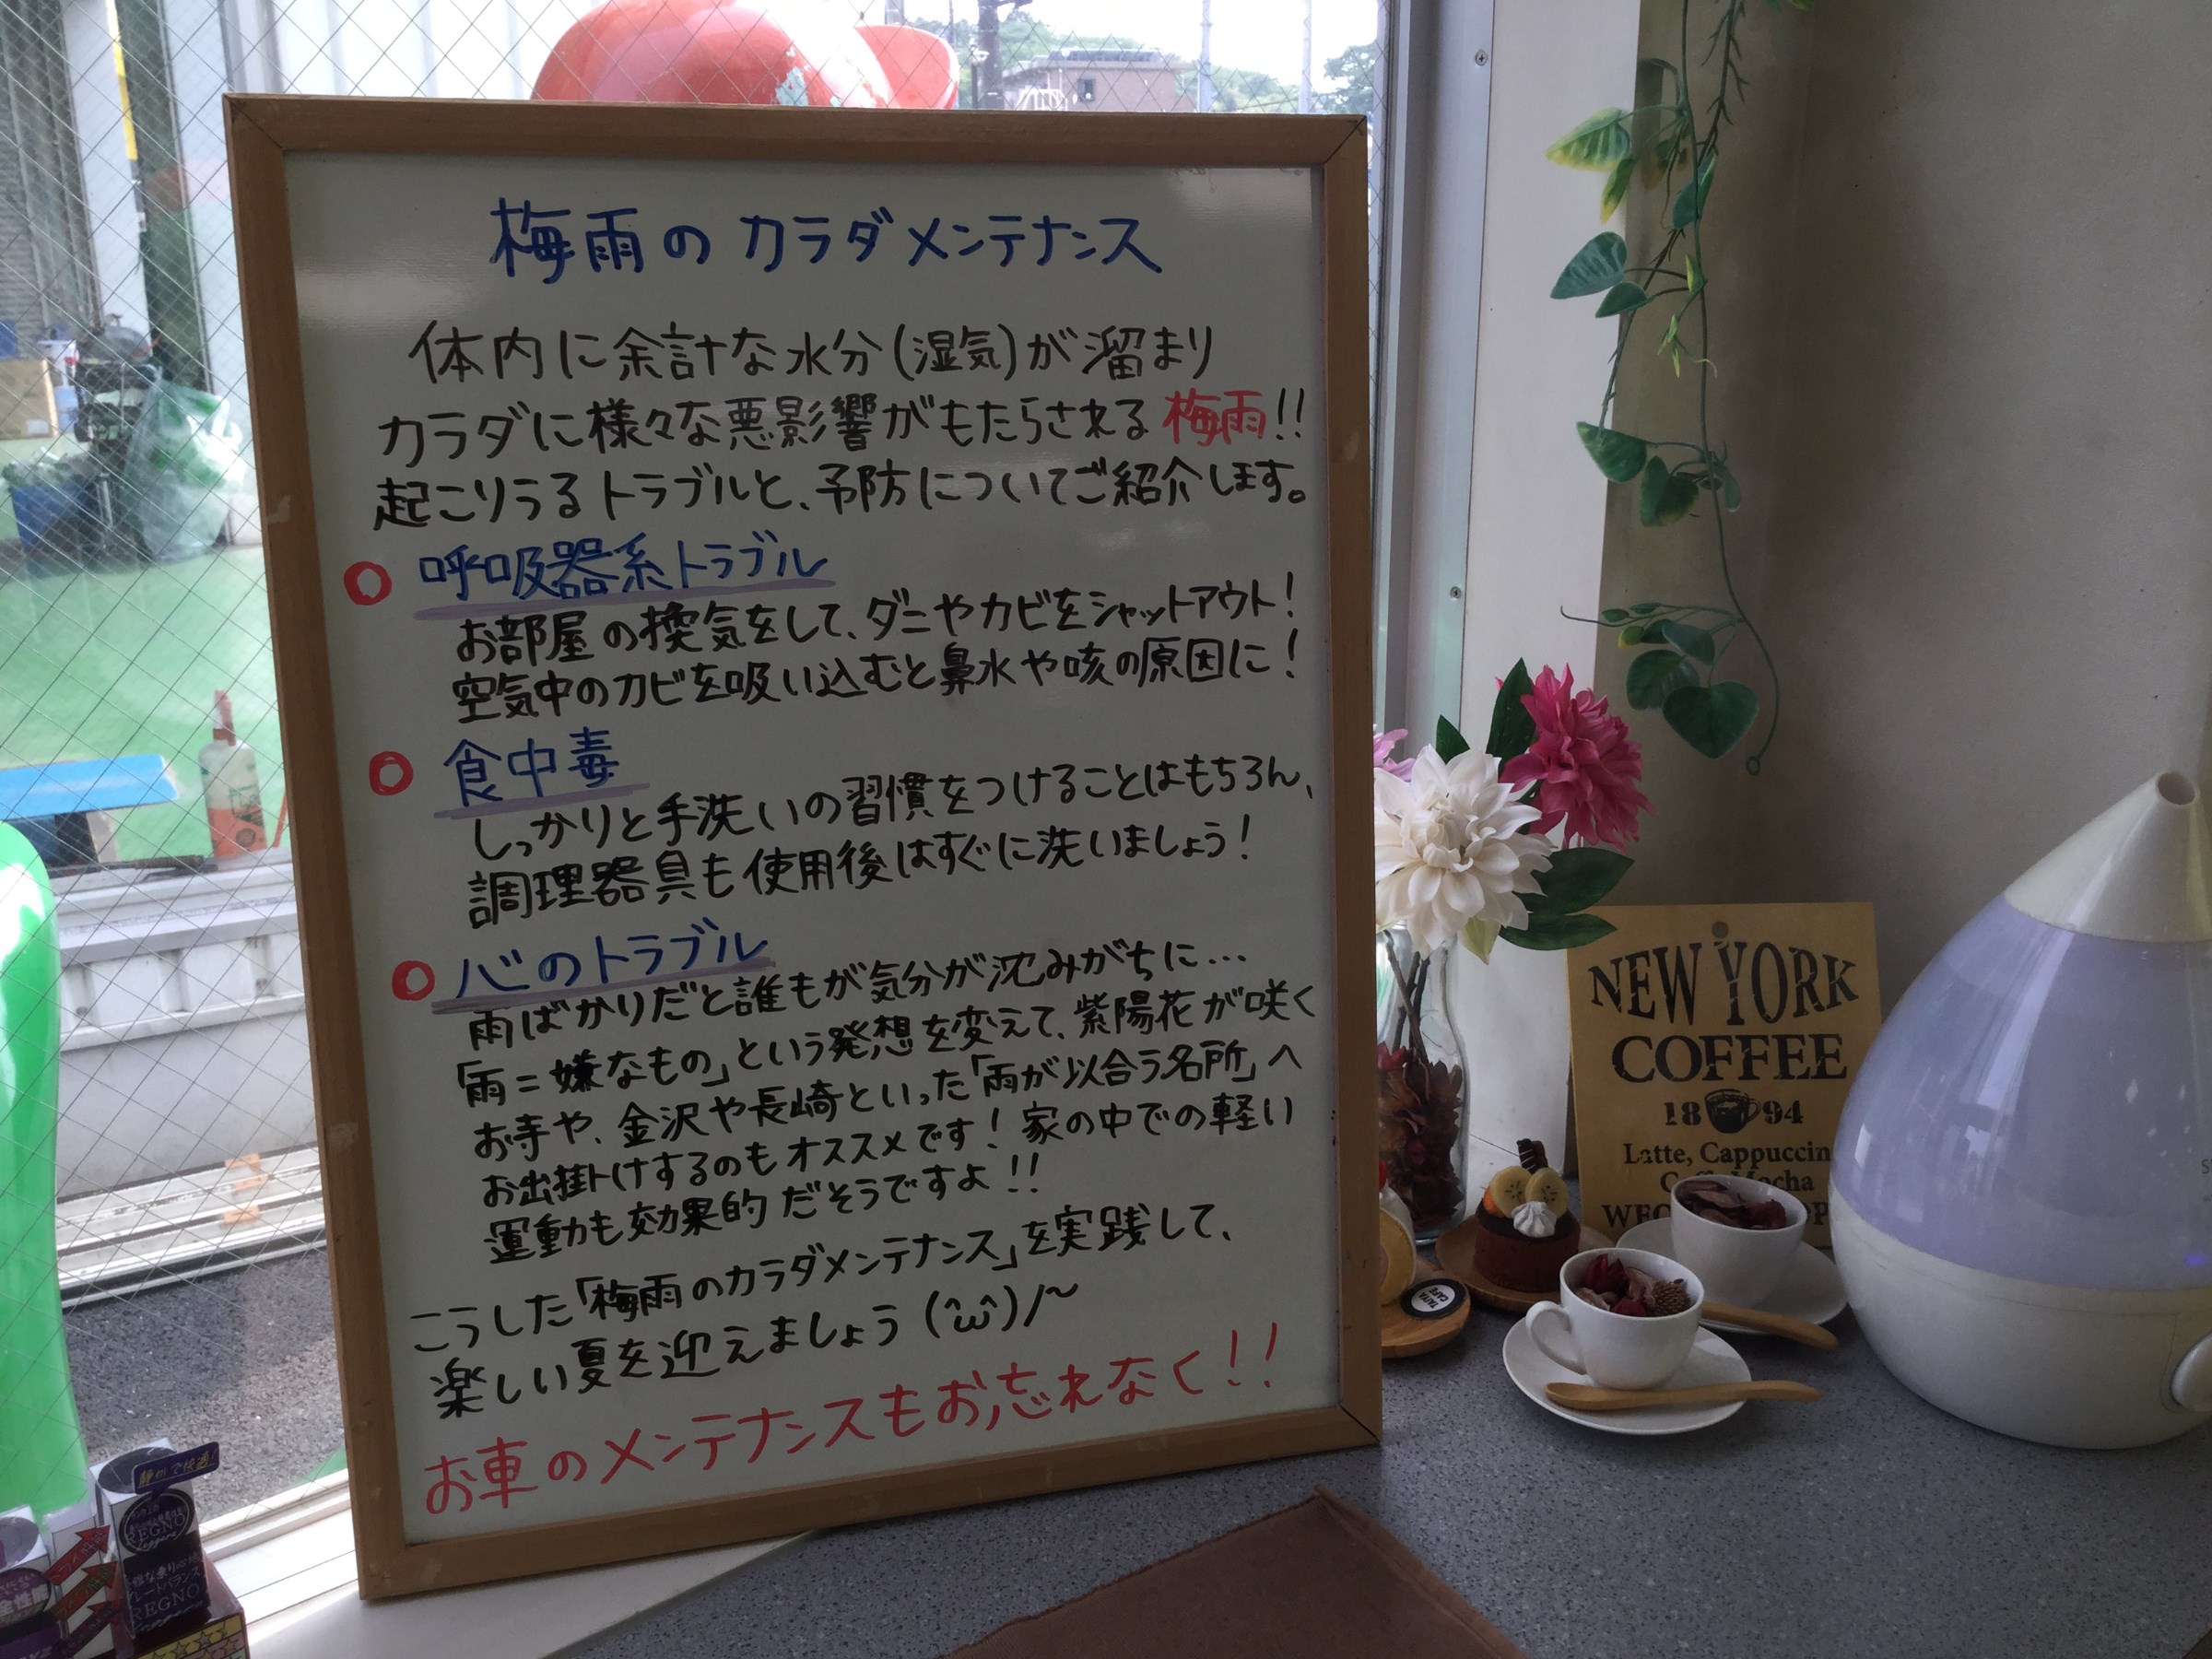 梅雨のカラダメンテナンス
体内に余計な水分(湿気)が溜まり
カラダに様々な悪影響がもたらされる梅雨!!
起こりうるトラブルと、予防についてご紹介します。
呼吸器系トラブル
お部屋の換気をして、ダニやカビをシャットアウト!
空気中のカビを吸い込むと鼻水や咳の原因に!
食中毒
しっかりと手洗いの習慣をつけることはもちろん、
調理器具も使用後はすぐに洗いましょう!
心のトラブル
雨ばかりだと誰もが気分が沈みがちに…
「雨=嫌なもの」という発想を変えて、紫陽花が咲く
お寺や、金沢や長崎といった「雨が似合う名所」へ
お出掛けするのもオススメです! 家の中での軽い
運動も効果的だそうですよ!!
こうした「梅雨のカラダメンテナンス」を実践して、
楽しい夏を迎えましょう(^ω^)/~
お車のメンテナンスもお忘れなく!!
NEW YORK
COFFEE
18 94
Latte, Cappuccin
TAIYA
CAFE
静かで快適!
REGNO